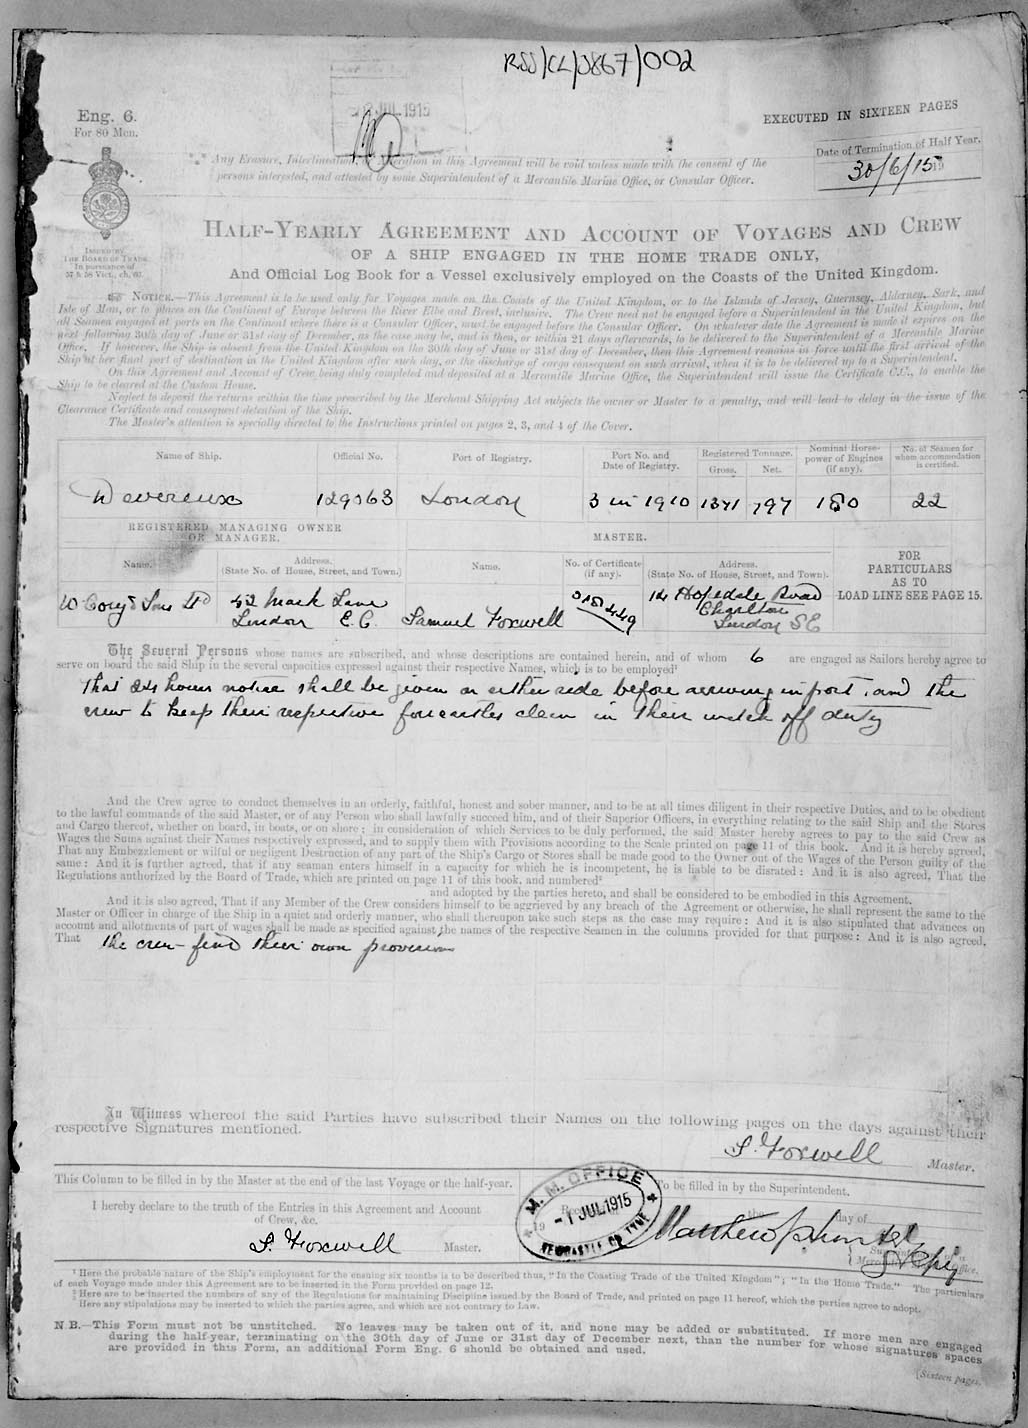 RSS/CL/J867/002
JUL 1915
Eng. 6.
For 80 Men.
EXECUTED IN SIXTEEN PAGES
Date of Termination of Half Year.
30/6/15 19
Any Erasure, Interlineation or Alteration in this Agreement will be void unless made with the consent of the
persons interested, and attested by some Superintendent of a Mercantile Marine Office, or Consular Officer.
ISSUED BY
THE BOARD OF TRADE
In pursuance of
57 & 58 Vict., ch. 60.
HALF-YEARLY AGREEMENT AND ACCOUNT OF VOYAGES AND CREW
OF A SHIP ENGAGED IN THE HOME TRADE ONLY,
And Official Log Book for a Vessel exclusively employed on the Coasts of the United Kingdom.
NOTICE.—This Agreement is to be used only for Voyages made on the Coasts of the United Kingdom, or to the Islands of Jersey, Guernsey, Alderney, Sark, and
Isle of Man, or to places on the Continent of Europe between the River Elbe and Brest, inclusive. The Crew need not be engaged before a Superintendent in the United Kingdom, but
all Seamen engaged at ports on the Continent where there is a Consular Officer, must be engaged before the Consular Officer. On whatever date the Agreement is made it expires on the
next following 30th day of June or 31st day of December, as the case may be, and is then, or within 21 days afterwards, to be delivered to the Superintendent of a Mercantile Marine
Office. If however, the Ship is absent from the United Kingdom on the 30th day of June or 31st day of December, then this Agreement remains in force until the first arrival of the
Ship at her final port of destination in the United Kingdom after such day, or the discharge of cargo consequent on such arrival, when it is to be delivered up to a Superintendent.
On this Agreement and Account of Crew being duly completed and deposited at a Mercantile Marine Office, the Superintendent will issue the Certificate C.C., to enable the
Ship to be cleared at the Custom House.
Neglect to deposit the returns within the time prescribed by the Merchant Shipping Act subjects the owner or Master to a penalty, and will lead to delay in the issue of the
Clearance Certificate and consequent detention of the Ship.
The Master's attention is specially directed to the Instructions printed on pages 2, 3, and 4 of the Cover.
Name of Ship. Official No. Port of Registry. Port No. and Date of Registry. Registered Tonnage. Gross. Net. Nominal Horse-power of Engines (if any). No. of Seamen for whom accommodation is certified.
Devereux 129063 London 3 in 1910 1371 797 180 22
REGISTERED MANAGING OWNER
OR MANAGER.
MASTER.
Name. Address. (State No. of House, Street, and Town.) Name. No. of Certificate (if any). Address. (State No. of House, Street, and Town).
FOR
PARTICULARS
AS TO
LOAD LINE SEE PAGE 15.
W Cory & Sons Ltd 52 Mark Lane London E.C. Samuel Foxwell 14 Hopedale Road Charlton London SE
The Several Persons whose names are subscribed, and whose descriptions are contained herein, and of whom 6 are engaged as Sailors hereby agree to
serve on board the said Ship in the several capacities expressed against their respective Names, which is to be employed¹
That 24 hours notice shall be given on either side before arriving in port, and the
crew to keep their respective forecastles clean in their watch off duty
And the Crew agree to conduct themselves in an orderly, faithful, honest and sober manner, and to be at all times diligent in their respective Duties, and to be obedient
to the lawful commands of the said Master, or of any Person who shall lawfully succeed him, and of their Superior Officers, in everything relating to the said Ship and the Stores
and Cargo thereof, whether on board, in boats, or on shore; in consideration of which Services to be duly performed, the said Master hereby agrees to pay to the said Crew as
Wages the Sums against their Names respectively expressed, and to supply them with Provisions according to the Scale printed on page 11 of this book. And it is hereby agreed,
That any Embezzlement or wilful or negligent Destruction of any part of the Ship's Cargo or Stores shall be made good to the Owner out of the Wages of the Person guilty of the
same: And it is further agreed, that if any seaman enters himself in a capacity for which he is incompetent, he is liable to be disrated: And it is also agreed, That the
Regulations authorized by the Board of Trade, which are printed on page 11 of this book, and numbered²
and adopted by the parties hereto, and shall be considered to be embodied in this Agreement.
And it is also agreed, That if any Member of the Crew considers himself to be aggrieved by any breach of the Agreement or otherwise, he shall represent the same to the
Master or Officer in charge of the Ship in a quiet and orderly manner, who shall thereupon take such steps as the case may require: And it is also stipulated that advances on
account and allotments of part of wages shall be made as specified against the names of the respective Seamen in the columns provided for that purpose: And it is also agreed,
That the crew find their own provisions
In Witness whereof the said Parties have subscribed their Names on the following pages on the days against their
respective Signatures mentioned.
S. Foxwell Master.
This Column to be filled in by the Master at the end of the last Voyage or the half-year.
To be filled in by the Superintendent.
I hereby declare to the truth of the Entries in this Agreement and Account
of Crew, &c.
S. Foxwell Master.
M. M. OFFICE
-1 JUL 1915
NEWCASTLE ON TYNE
the day of
19
Matthew
¹ Here the probable nature of the Ship's employment for the ensuing six months is to be described thus, "In the Coasting Trade of the United Kingdom"; "In the Home Trade." The particulars
of each Voyage made under this Agreement are to be inserted in the Form provided on page 12.
² Here are to be inserted the numbers of any of the Regulations for maintaining Discipline issued by the Board of Trade, and printed on page 11 hereof, which the parties agree to adopt.
Here any stipulations may be inserted to which the parties agree, and which are not contrary to Law.
N.B.—This Form must not be unstitched. No leaves may be taken out of it, and none may be added or substituted. If more men are engaged
during the half-year, terminating on the 30th day of June or 31st day of December next, than the number for whose signatures spaces
are provided in this Form, an additional Form Eng. 6 should be obtained and used.
[Sixteen pages.